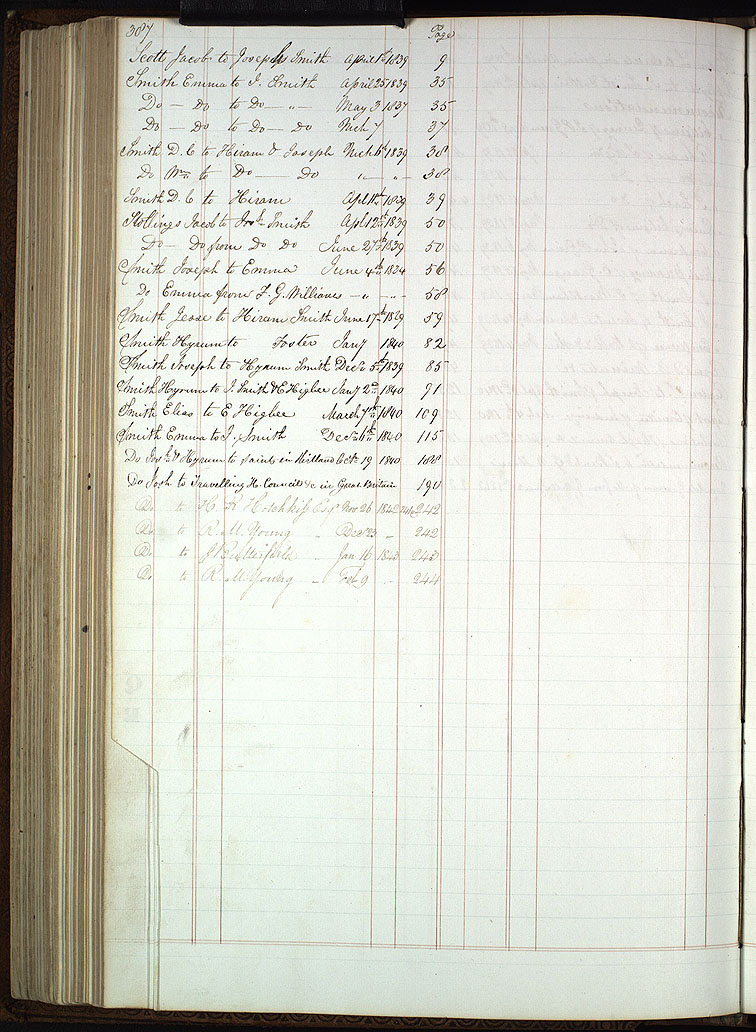 387 Page
Scott Jacob to Joseph Smith April 1st 1839 9
Smith Emma to J. Smith April 25 1839 35
Do — do to Do — " — May 3 1837 35
Do — do to Do — Do Mch 7 37
Smith D. C to Hiram & Joseph Mch 6th 1839 38
Do Wm to Do — Do " — " — 38
Smith D. C to Hiram Apl 11th 1839 39
Stollings Jacob to Josh Smith Apl 12th 1839 50
Do — Do from Do Do June 27th 1839 50
Smith Joseph to Emma June 4th 1834 56
Do Emma from F. G. Williams — " — " — 58
Smith Jesse to Hiram Smith June 17th 1829 59
Smith Hyrum to Foster Jany 1840 82
Smith Joseph to Hyrum Smith Decr 5th 1839 85
Smith Hyrum to J. Smith & E Higbee Jany 2nd 1840 91
Smith Elias to E Higbee March 7th 1840 109
Smith Emma to J. Smith Decr 6th 1840 115
Do Josh & Hyrum to Saints in Kirtland Oct 19 1840 188
Do Josh to Travelling H. Council &c in Great Britain 190
Do to H. R Hotchkiss Esqr Nov 26 1842 242
Do to R. M. Young " Decr 23 — 242
Do to " Jan 16 1843 243
Do to R. M Young — Feb 9 — 244